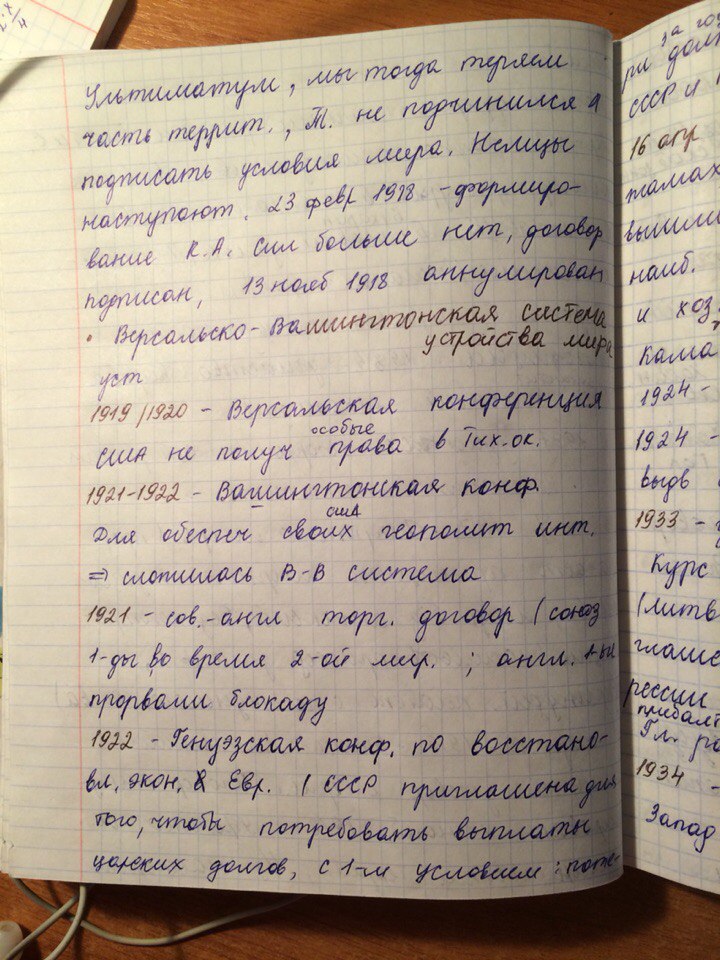 Ультиматум, мы тогда теряем
часть террит., Т. не подчинился и
подписать условия мира. Немцы
наступают. 23 февр 1918 - формиро-
вание К.А. сил больше нет, договор
подписан, 13 нояб 1918 аннулирован
• Версальско-Вашингтонская система
устройства мира
уст
1919/1920 - Версальская конференция
особые
США не получ права в Тих.ок.
1921-1922 - Вашингтонская конф.
США
Для обеспеч своих геополит инт.
=> сложилась В-В система
1921 - сов.-англ торг. договор (союз
1-ды, во время 2-ой мир. ; англ.
прорвали блокаду
1922 - Генуэзская конф. по восстано-
вл. экон. в Евр. (СССР приглашена для
того, чтобы потребовать выплаты
царских долгов, с 1-м условием: поте-
за го
ри долж
СССР и
16 апр
вышли
наиб.
и хоз.
кама
1924 -
1924 -
выдв
1933 -
Курс
(литв
глаше
рессии
прибалт
Гл. ра
1934 -
Запад